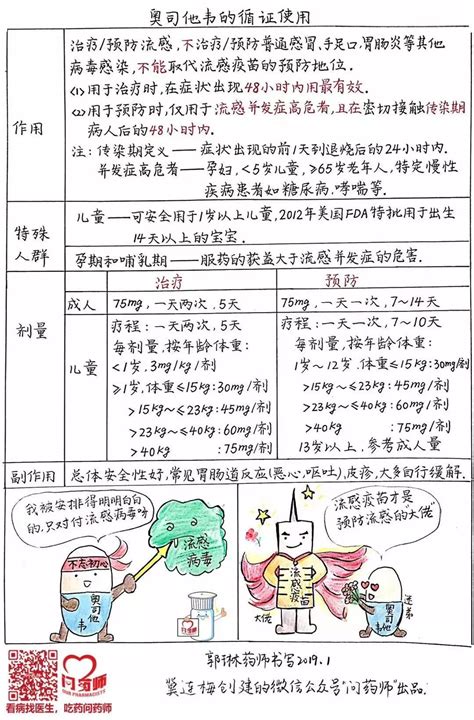 奥司他韦的循证使用
作用
治疗/预防流感,不治疗/预防普通感冒,手足口,胃肠炎等其他
病毒感染,不能取代流感疫苗的预防地位.
(1)用于治疗时,在症状出现48小时内用最有效.
(2)用于预防时,仅用于流感并发症高危者,且在密切接触传染期
病人后的48小时内.
注:传染期定义——症状出现的前1天到退烧后的24小时内.
并发症高危者——孕妇,<5岁儿童,≥65岁老年人,特定慢性
疾病患者如糖尿病,哮喘等.
特殊
人群
儿童——可安全用于1岁以上儿童,2012年美国FDA特批用于出生
14天以上的宝宝.
孕期和哺乳期——服药的获益大于流感并发症的危害.
剂量
治疗
预防
成人
75mg,一天两次,5天
75mg,一天一次,7~14天
儿童
疗程:一天两次,5天
每剂量,按年龄体重:
<1岁,3mg/kg/剂
≥1岁,体重≤15kg:30mg/剂
>15kg~≤23kg:45mg/剂
>23kg~≤40kg:60mg/剂
>40kg :75mg/剂
疗程:一天一次,7~10天
每剂量,按年龄体重:
1岁~12岁,体重≤15kg:30mg/剂
>15kg~≤23kg:45mg/剂
>23kg~≤40kg:60mg/剂
>40kg :75mg/剂
13岁以上,参考成人量
副作用
总体安全性好,常见胃肠道反应(恶心,呕吐),皮疹,大多自行缓解.
我被安排得明明白白
的,只对付流感病毒呀
流感
病毒
不忘初心
奥司他韦
问药师
流感疫苗才是
预防流感的"大佬"
流感疫苗
大佬
迷弟
奥司他韦
郭琳药师书写2019.1
冀连梅创建的微信公众号"问药师"出品.
问药师
OUR PHARMACISTS
看病找医生,吃药问药师